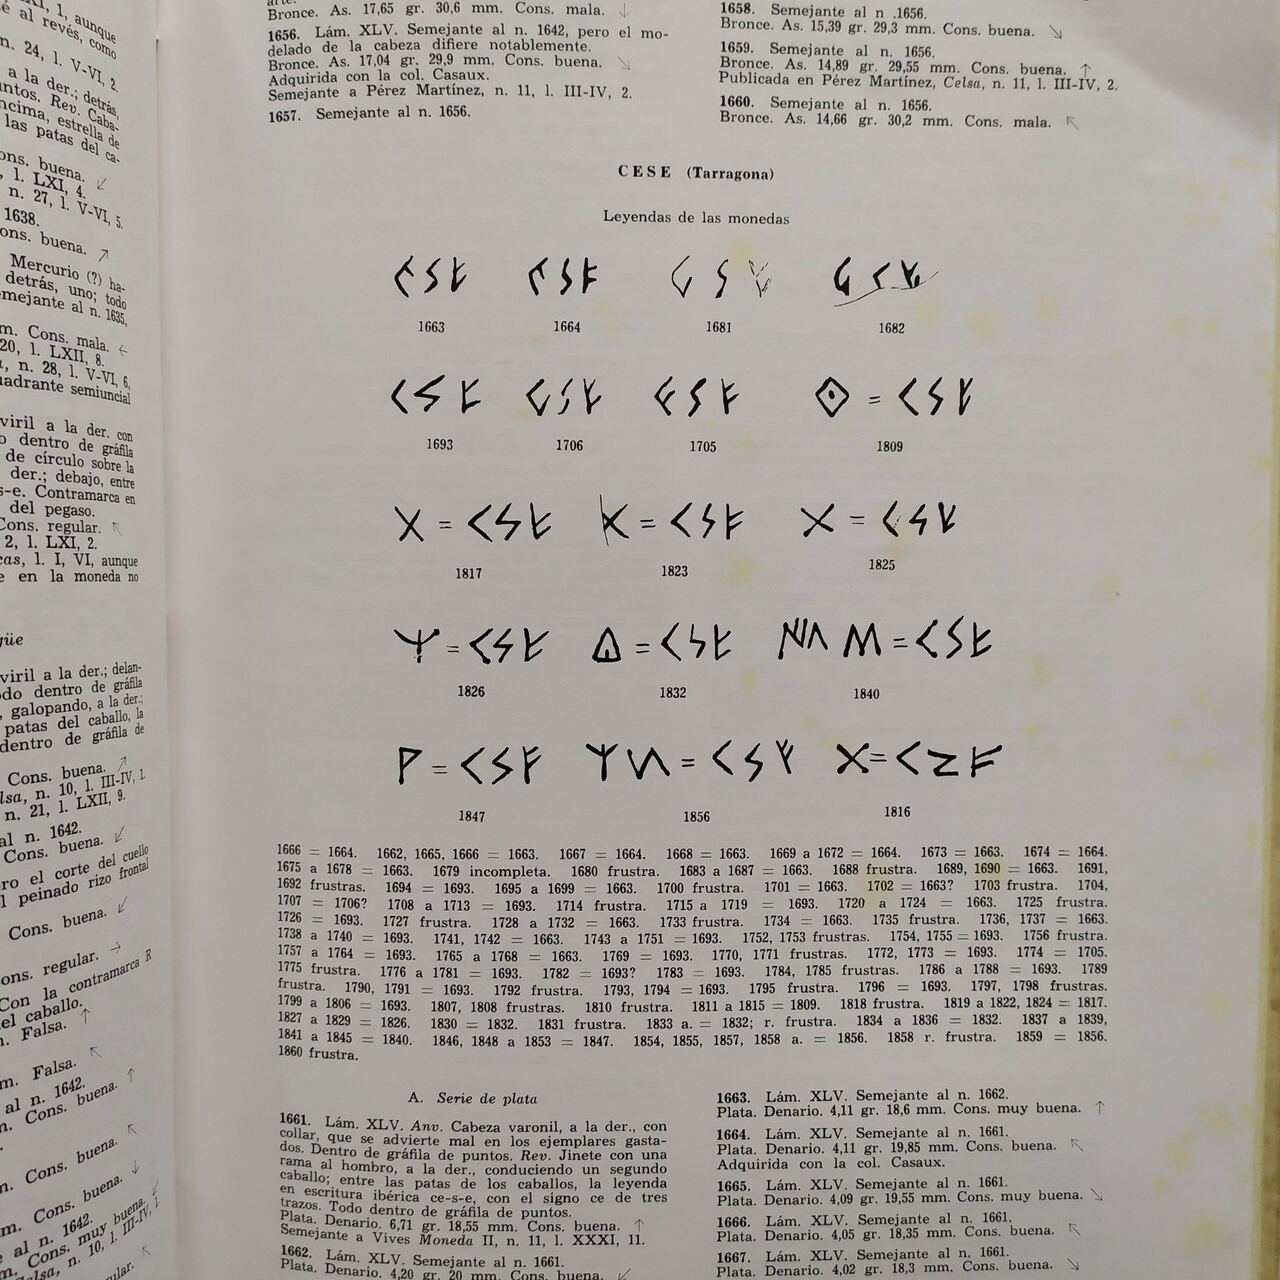 XI, 1, aunque
é al revés, como
n. 24, l. V-VI, 2.
a la der.; detrás,
Rev. Caba-
encima, estrella de
las patas del ca-
Cons. buena. ↙
l. LXI, 4.
n. 27, l. V-VI, 5.
1638.
Cons. buena. ↗
Mercurio (?) ha-
detrás, uno; todo
emejante al n. 1635,
m. Cons. mala. ←
20, l. LXII, 8.
n. 28, l. V-VI, 6,
uadrante semiuncial
viril a la der. con
dentro de gráfila
de círculo sobre la
der.; debajo, entre
s-e. Contramarca en
del pegaso.
Cons. regular. ↖
2, l. LXI, 2.
cas, l. I, VI, aunque
en la moneda no
güe
viril a la der.; delan-
odo dentro de gráfila
, galopando, a la der.;
patas del caballo, la
dentro de gráfila de
Cons. buena. ↗
elsa, n. 10, l. III-IV, 1.
n. 21, l. LXII, 9.
al n. 1642.
Cons. buena. ↙
ero el corte del cuello
l peinado rizo frontal
Cons. buena. ↙
ons. regular. →
Con la contramarca R
el caballo.
Falsa. ↑
m. Falsa. ↖
al n. 1642.
Cons. buena. ↑
Cons. buena. ↖
m. Cons. buena. ↓
al n. 1642.
m. Cons. muy buena.
elsa, n. 10, l. III-IV, 1.
Bronce. As. 17,65 gr. 30,6 mm. Cons. mala. ↓
1656. Lám. XLV. Semejante al n. 1642, pero el mo-
delado de la cabeza difiere notablemente.
Bronce. As. 17,04 gr. 29,9 mm. Cons. buena. ↘
Adquirida con la col. Casaux.
Semejante a Pérez Martínez, n. 11, l. III-IV, 2.
1657. Semejante al n. 1656.
1658. Semejante al n .1656.
Bronce. As. 15,39 gr. 29,3 mm. Cons. buena. ↘
1659. Semejante al n. 1656.
Bronce. As. 14,89 gr. 29,55 mm. Cons. buena. ↑
Publicada en Pérez Martínez, Celsa, n. 11, l. III-IV, 2.
1660. Semejante al n. 1656.
Bronce. As. 14,66 gr. 30,2 mm. Cons. mala. ↖
CESE (Tarragona)
Leyendas de las monedas
1663 1664 1681 1682
1693 1706 1705 1809
1817 1823 1825
1826 1832 1840
1847 1856 1816
1666 = 1664. 1662, 1665, 1666 = 1663. 1667 = 1664. 1668 = 1663. 1669 a 1672 = 1664. 1673 = 1663. 1674 = 1664.
1675 a 1678 = 1663. 1679 incompleta. 1680 frustra. 1683 a 1687 = 1663. 1688 frustra. 1689, 1690 = 1663. 1691,
1692 frustras. 1694 = 1693. 1695 a 1699 = 1663. 1700 frustra. 1701 = 1663. 1702 = 1663? 1703 frustra. 1704,
1707 = 1706? 1708 a 1713 = 1693. 1714 frustra. 1715 a 1719 = 1693. 1720 a 1724 = 1663. 1725 frustra.
1726 = 1693. 1727 frustra. 1728 a 1732 = 1663. 1733 frustra. 1734 = 1663. 1735 frustra. 1736, 1737 = 1663.
1738 a 1740 = 1693. 1741, 1742 = 1663. 1743 a 1751 = 1693. 1752, 1753 frustras. 1754, 1755 = 1693. 1756 frustra.
1757 a 1764 = 1693. 1765 a 1768 = 1663. 1769 = 1693. 1770, 1771 frustras. 1772, 1773 = 1693. 1774 = 1705.
1775 frustra. 1776 a 1781 = 1693. 1782 = 1693? 1783 = 1693. 1784, 1785 frustras. 1786 a 1788 = 1693. 1789
frustra. 1790, 1791 = 1693. 1792 frustra. 1793, 1794 = 1693. 1795 frustra. 1796 = 1693. 1797, 1798 frustras.
1799 a 1806 = 1693. 1807, 1808 frustras. 1810 frustra. 1811 a 1815 = 1809. 1818 frustra. 1819 a 1822, 1824 = 1817.
1827 a 1829 = 1826. 1830 = 1832. 1831 frustra. 1833 a. = 1832; r. frustra. 1834 a 1836 = 1832. 1837 a 1839,
1841 a 1845 = 1840. 1846, 1848 a 1853 = 1847. 1854, 1855, 1857, 1858 a. = 1856. 1858 r. frustra. 1859 = 1856.
1860 frustra.
A. Serie de plata
1661. Lám. XLV. Anv. Cabeza varonil, a la der., con
collar, que se advierte mal en los ejemplares gasta-
dos. Dentro de gráfila de puntos. Rev. Jinete con una
rama al hombro, a la der., conduciendo un segundo
caballo; entre las patas de los caballos, la leyenda
en escritura ibérica ce-s-e, con el signo ce de tres
trazos. Todo dentro de gráfila de puntos.
Plata. Denario. 6,71 gr. 18,55 mm. Cons. buena. ↑
Semejante a Vives Moneda II, n. 11, l. XXXI, 11.
1662. Lám. XLV. Semejante al n. 1661.
Plata. Denario. 4,20 gr. 20 mm. Cons. buena. ↙
1663. Lám. XLV. Semejante al n. 1662.
Plata. Denario. 4,11 gr. 18,6 mm. Cons. muy buena. ↑
1664. Lám. XLV. Semejante al n. 1661.
Plata. Denario. 4,11 gr. 19,85 mm. Cons. buena. ↖
Adquirida con la col. Casaux.
1665. Lám. XLV. Semejante al n. 1661.
Plata. Denario. 4,09 gr. 19,55 mm. Cons. muy buena. ↘
1666. Lám. XLV. Semejante al n. 1661.
Plata. Denario. 4,05 gr. 18,35 mm. Cons. buena. ↖
1667. Lám. XLV. Semejante al n. 1661.
Plata. Denario. 4,02 gr. 18,3 mm. Cons. buena. ↘